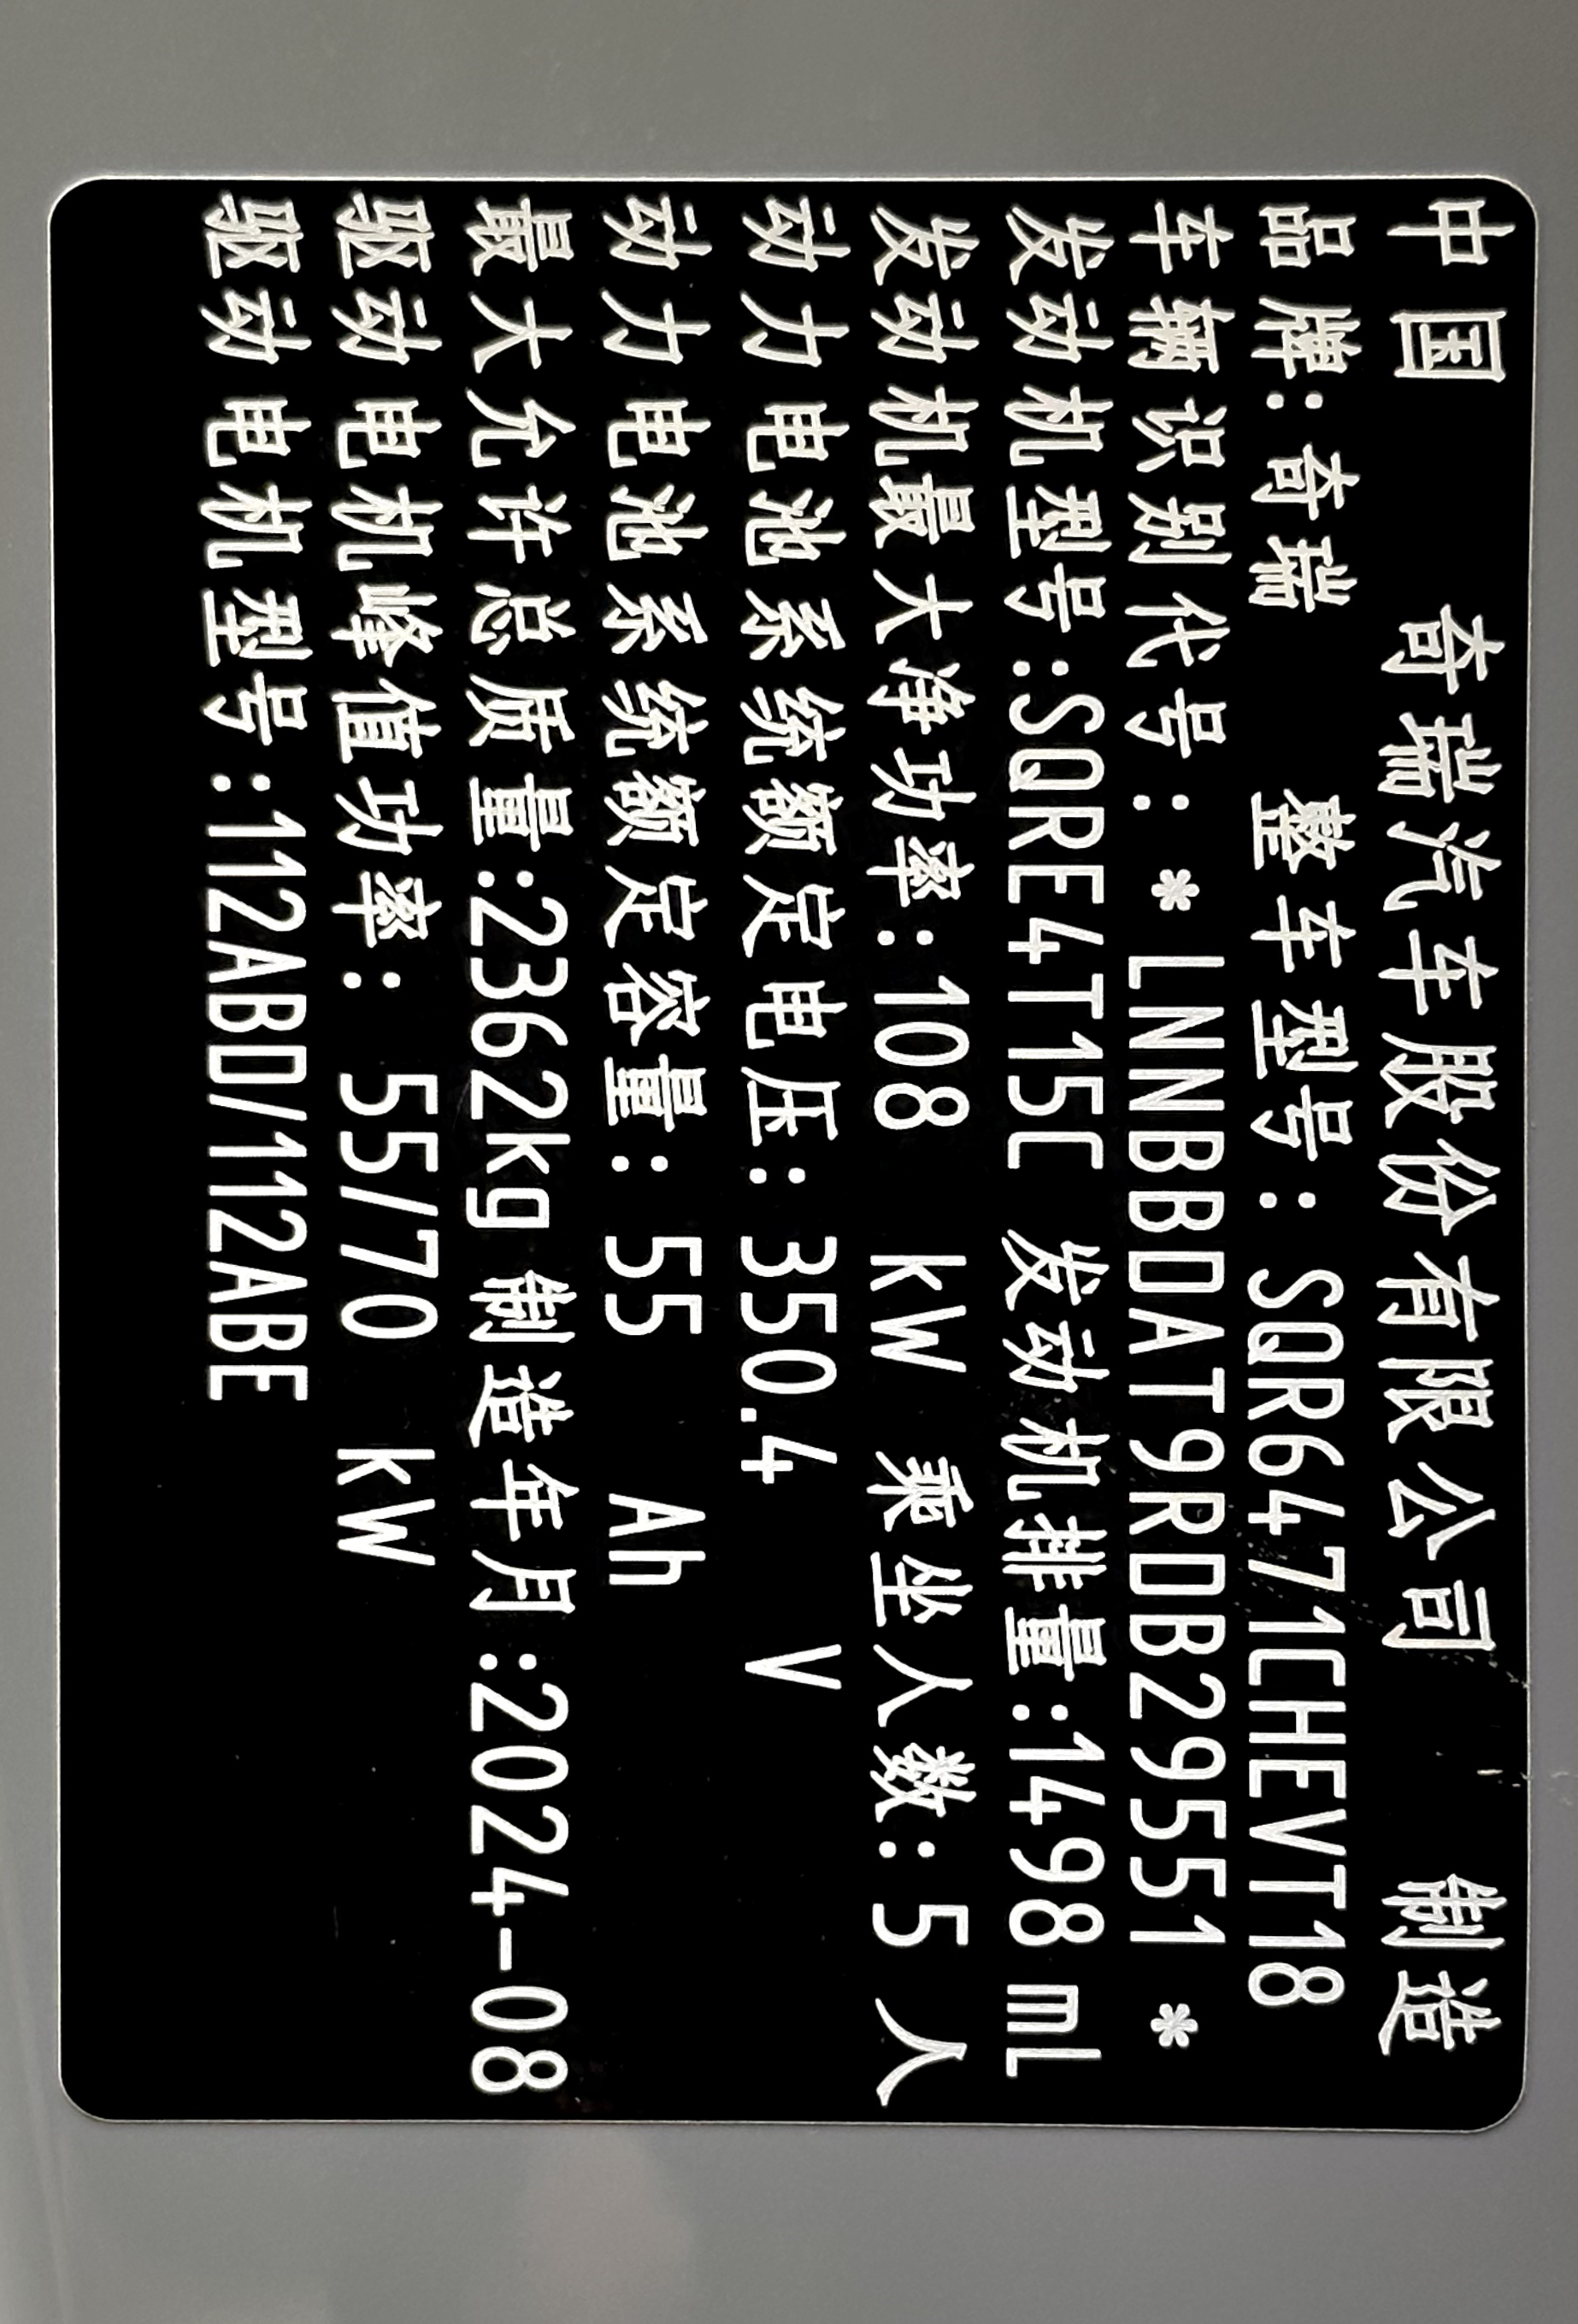 中国 奇瑞汽车股份有限公司 制造
品牌:奇瑞 整车型号:SQR6471CHEVT18
车辆识别代号:*LNNBBDAT9RDB29551*
发动机型号:SQRE4T15C 发动机排量:1498 mL
发动机最大净功率:108 kW 乘坐人数:5 人
动力电池系统额定电压:350.4 V
动力电池系统额定容量:55 Ah
最大允许总质量:2362kg 制造年月:2024-08
驱动电机峰值功率:55/70 kW
驱动电机型号:112ABD/112ABE